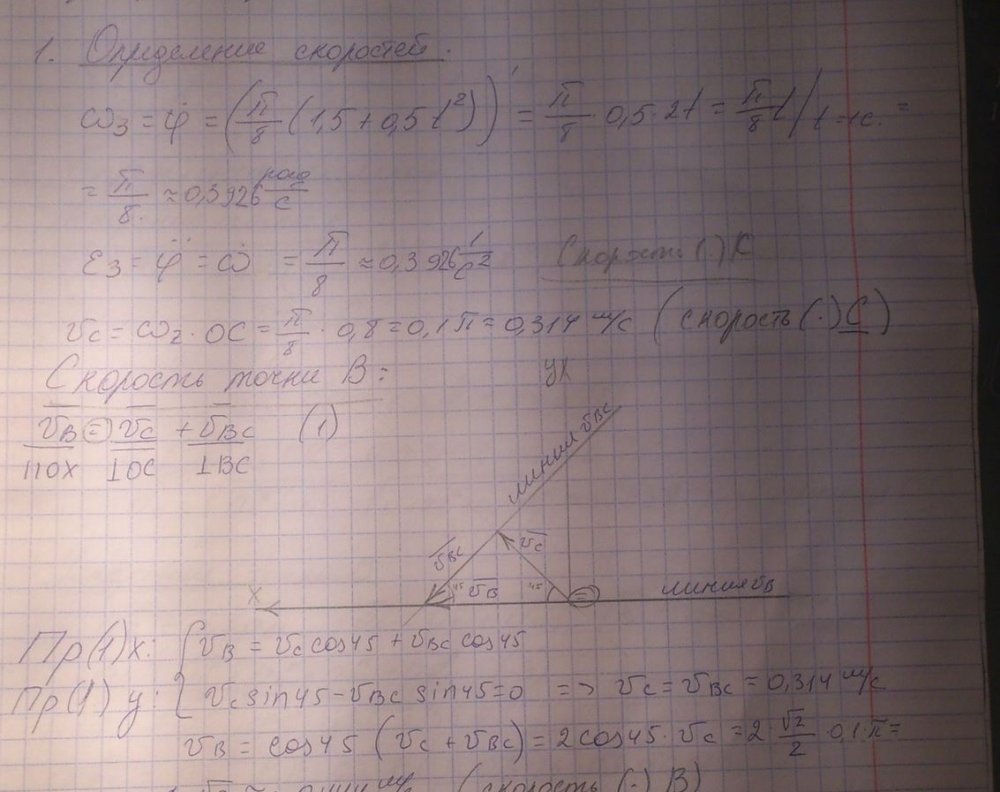 1. Определение скоростей.
ω₃ = φ̇ = (π/8 (1,5 + 0,5t²))' = π/8 · 0,5 · 2t = π/8 t / t=1c. =
= π/8. ≈ 0,3926 рад/с
ε₃ = φ̈ = ω̇ = π/8 ≈ 0,3926 1/c²
Скорость (·) К
Vc = ω₂ · OC = π/8 · 0,8 = 0,1π = 0,314 м/с (скорость (·) C)
Скорость точки B:
V̄B = V̄c + V̄BC (1)
||OX ⊥OC ⊥BC
y
линия VBC
V̄BC V̄c
45 V̄B 45
x линия VB
Пр(1) x: { VB = Vc cos45 + VBC cos45
Пр(1) y: { Vc sin45 - VBC sin45 = 0 => Vc = VBC = 0,314 м/с
VB = cos45 (Vc + VBC) = 2cos45 · Vc = 2 · √2/2 · 0,1 · π =
(скорость (·) B)